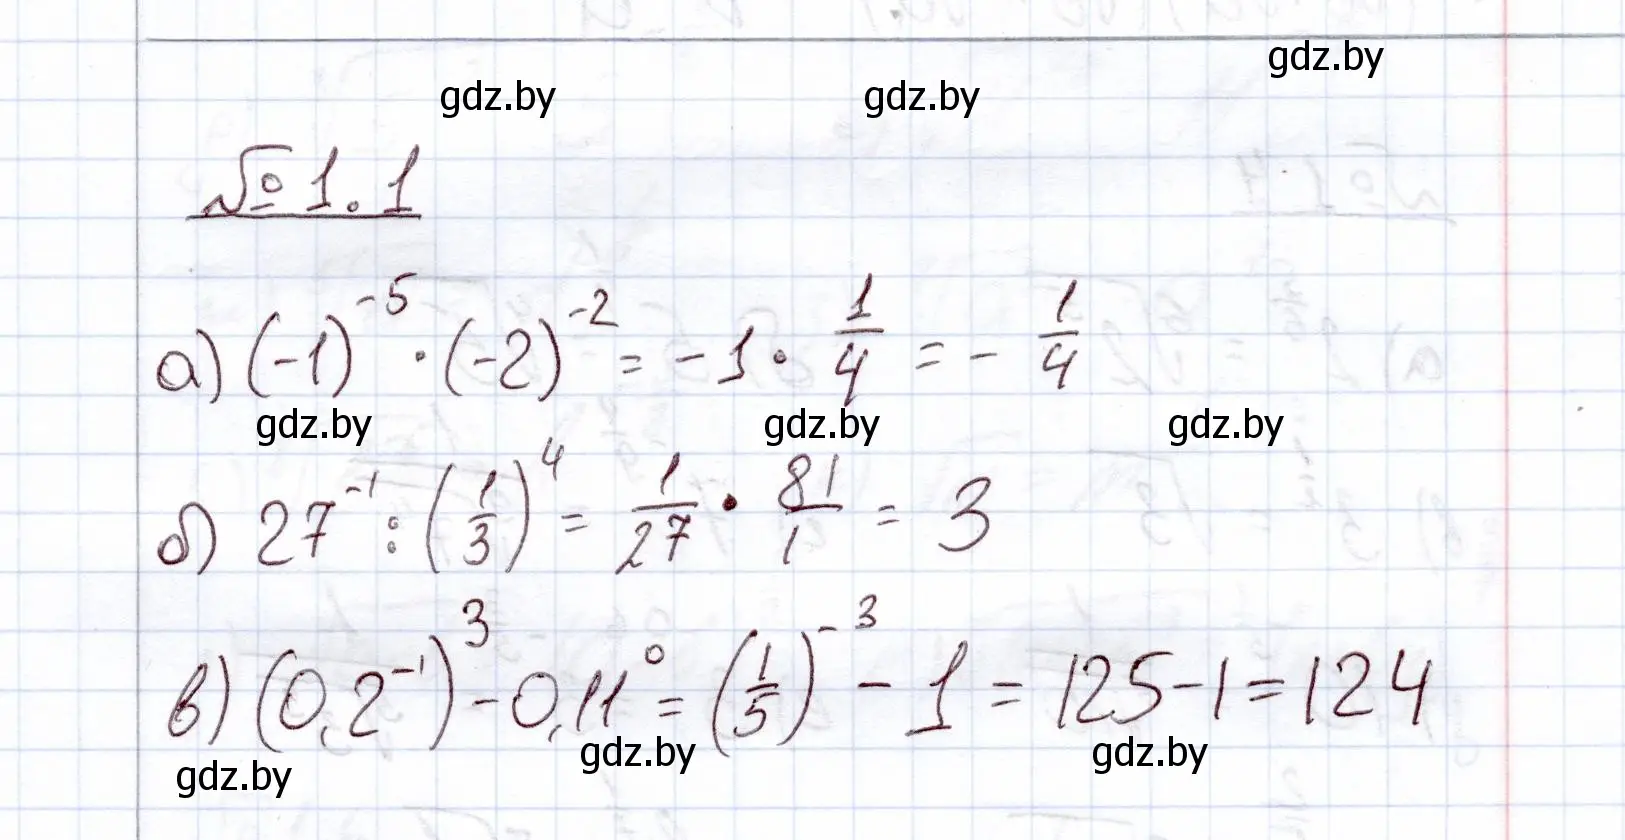 gdz.by
gdz.by gdz.by
№ 1.1
а) (-1)^{-5} · (-2)^{-2} = -1 · \frac{1}{4} = - \frac{1}{4}
gdz.by gdz.by gdz.by
б) 27^{-1} : (\frac{1}{3})^4 = \frac{1}{27} · \frac{81}{1} = 3
в) (0,2^{-1})^3 - 0,11^0 = (\frac{1}{5})^{-3} - 1 = 125 - 1 = 124
gdz.by gdz.by gdz.by